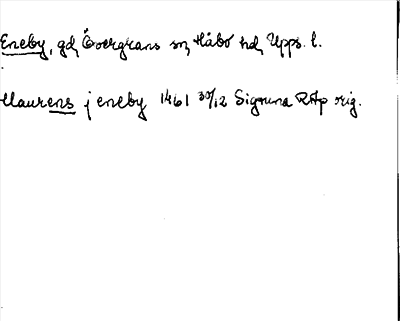 Eneby, gd, Övergrans sn, Håbo hd, Upps. l.
Maurens j eneby 1461 30/12 Sigtuna RAp orig.